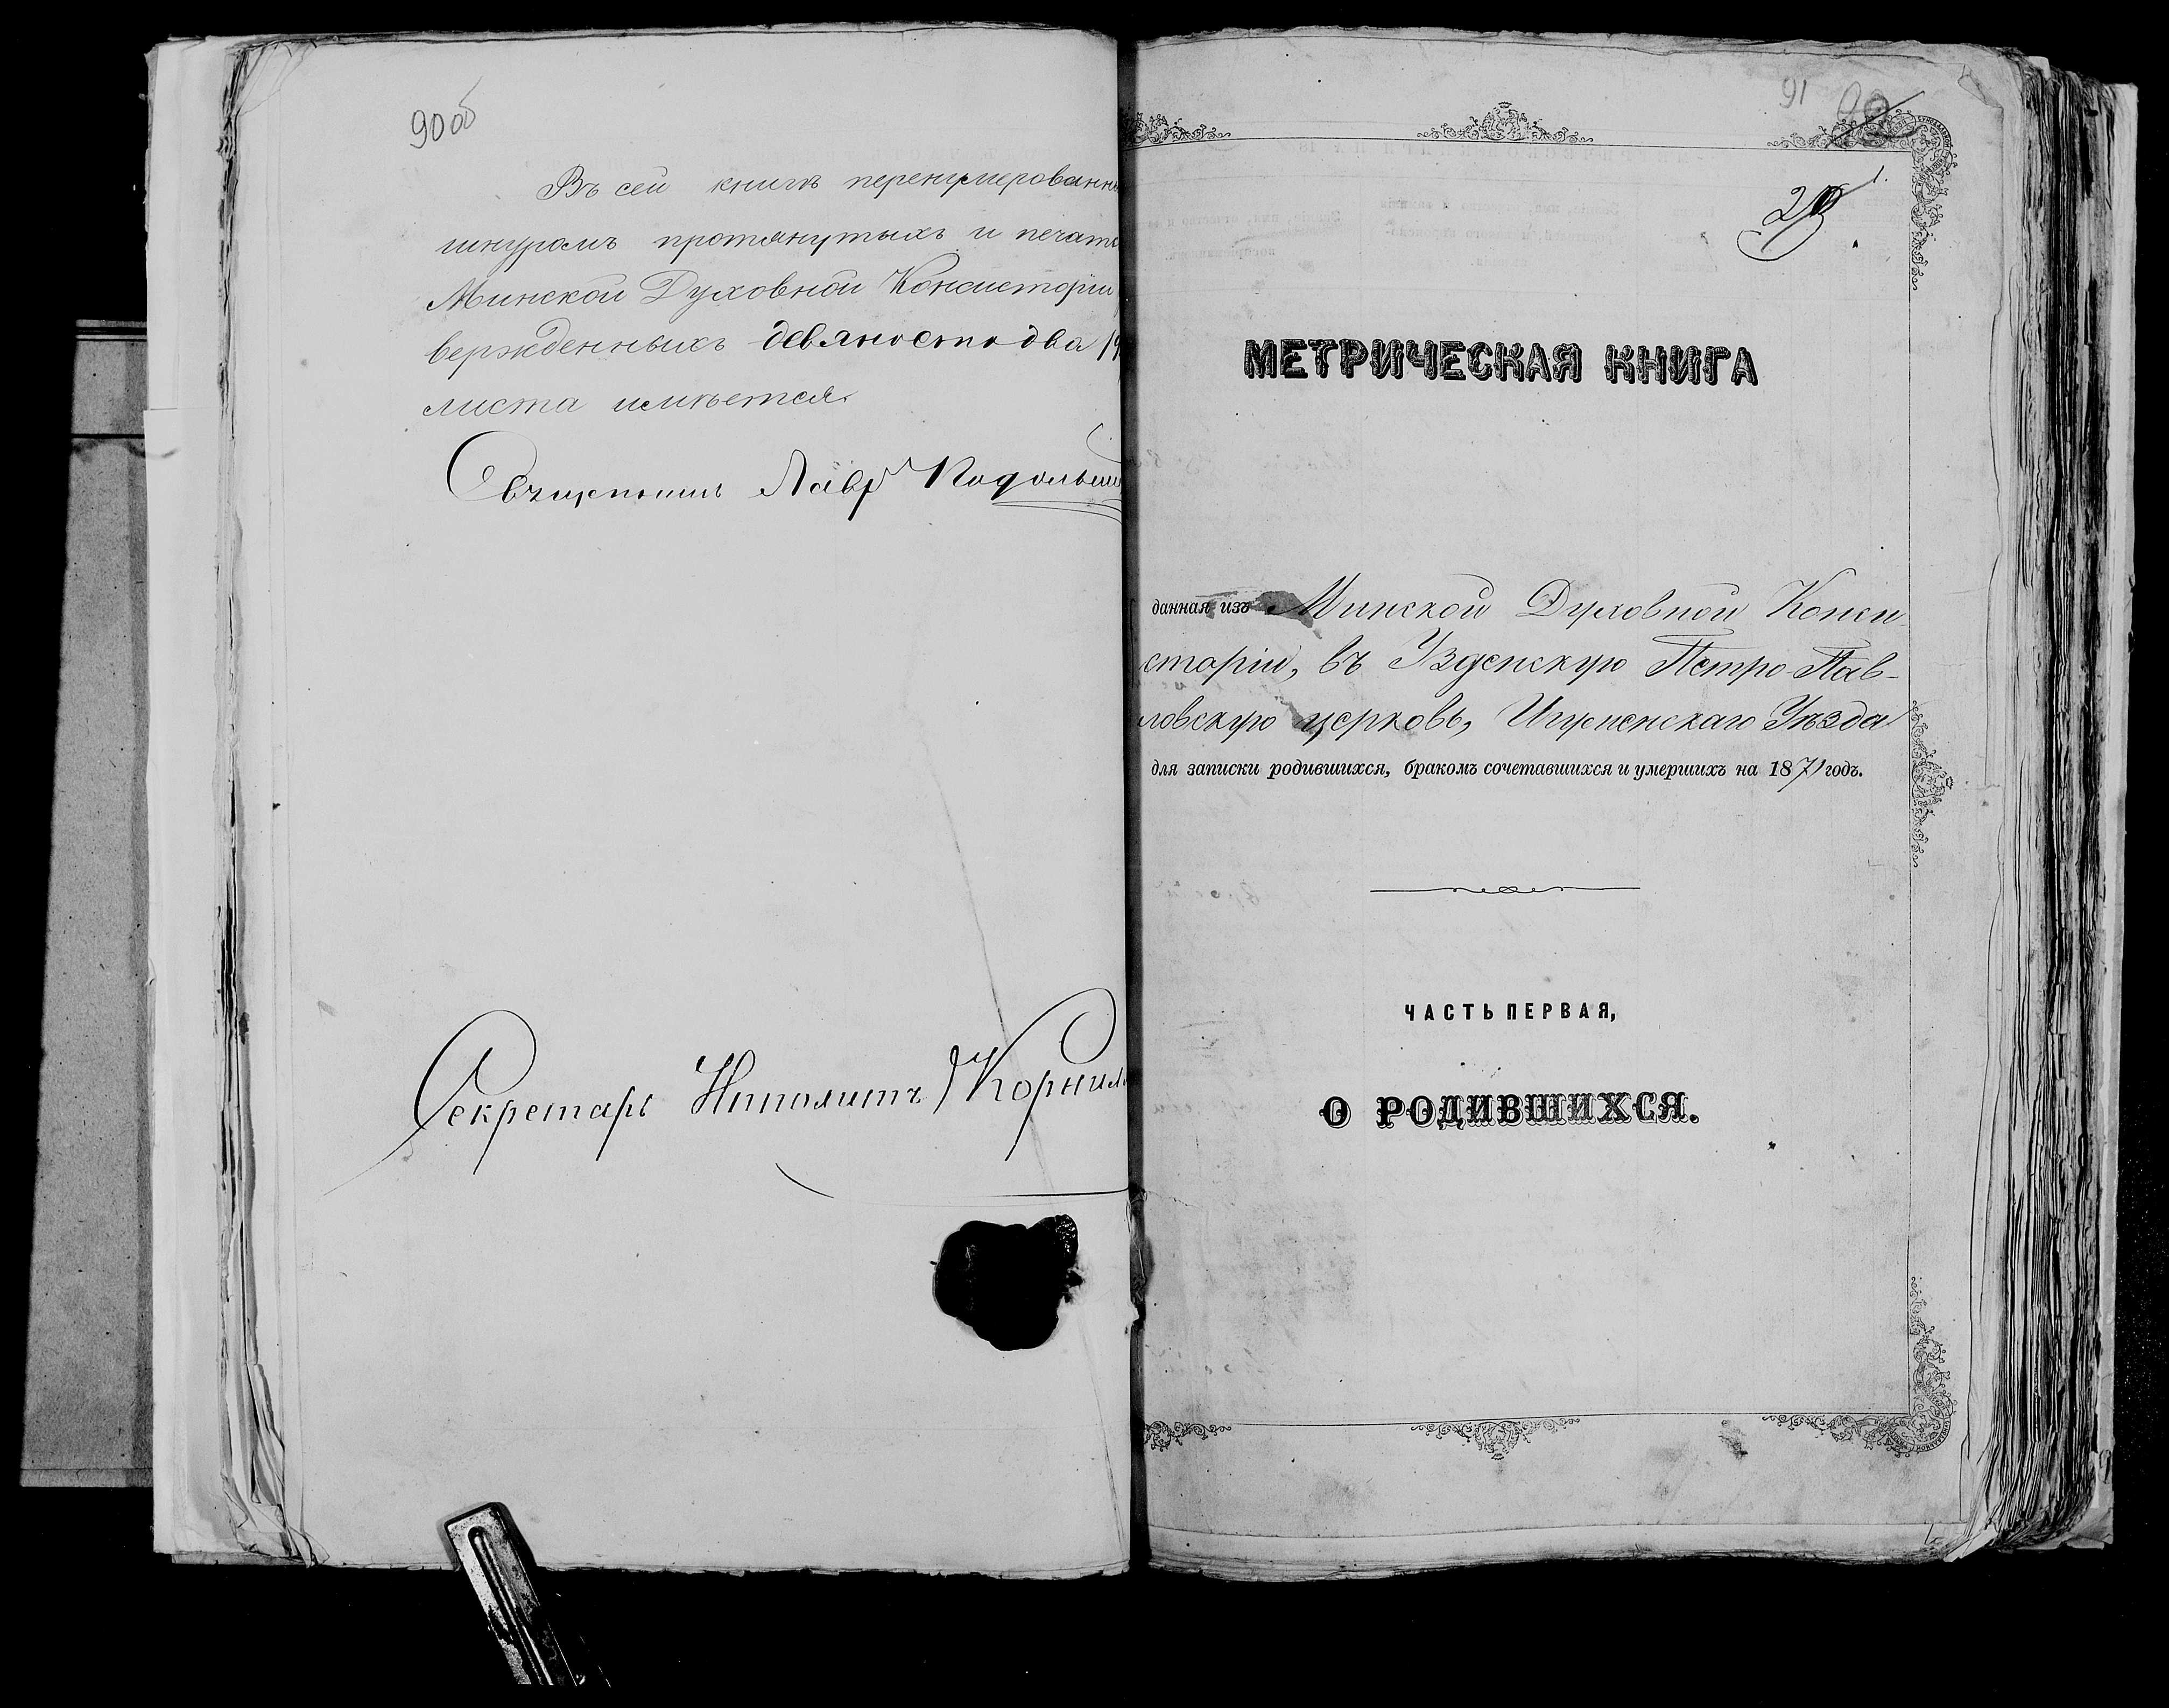 90 об
Въ сей книгѣ перенумерованн
шнуромъ протянутыхъ и печат
Минской Духовной Консисторіи
вержденныхъ девяносто два
листа имѣется.
Священникъ Лавр
Секретарь Ипполитъ Корнил
91
МЕТРИЧЕСКАЯ КНИГА
данная изъ Минской Духовной Конси-
сторіи, въ Узденскую Петро-Пав-
ловскую церковь, Игуменскаго Уѣзда
для записки родившихся, бракомъ сочетавшихся и умершихъ на 1871 годъ.
ЧАСТЬ ПЕРВАЯ,
О РОДИВШИХСЯ.